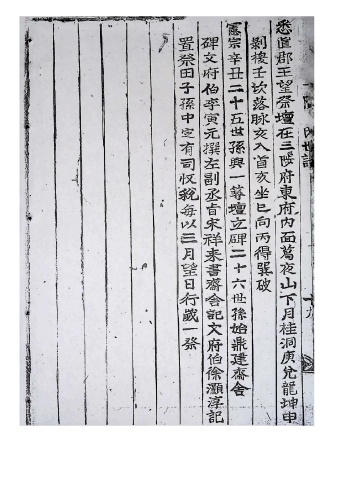 悉直郡王望祭壇在三陟府東府內面葛夜山下月桂洞庚兌龍坤申
剝換壬坎落脉亥入首亥坐巳向丙得巽破
憲宗辛丑二十五世孫興一募壇立碑二十六世孫始鼎建齋舍
碑文府伯李寅元撰左副丞旨宋祥來書齋舍記文府伯徐灝淳記
置祭田子孫中定有司收稅每以三月望日行歲一祭